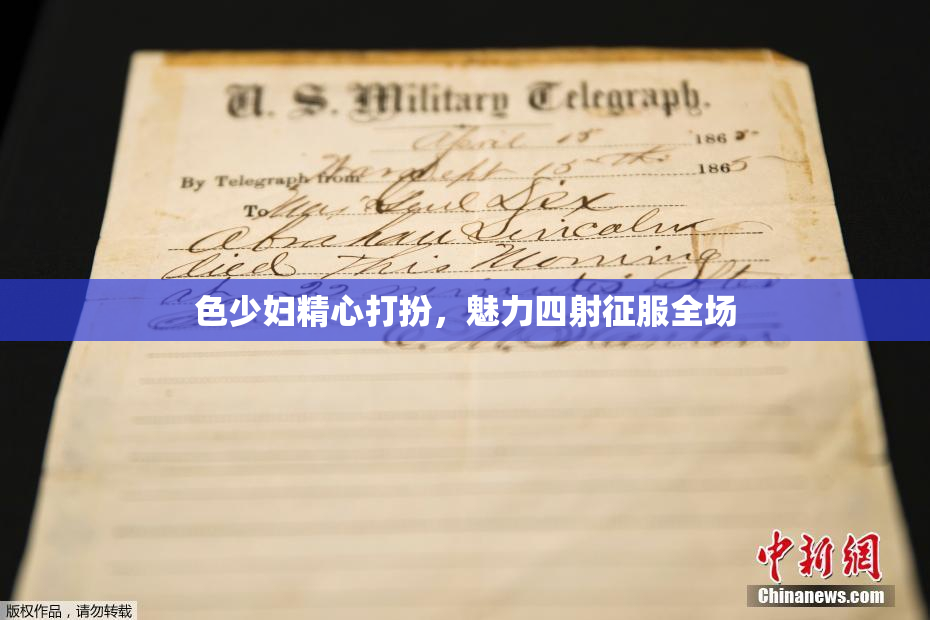 U. S. Military Telegraph.
April 15 1865
By Telegraph from War Dept 15th 1865
To Maj Genl Dix
Abraham Lincoln
died This Morning
at 22 minutes after
色少妇精心打扮，魅力四射征服全场
E. M. Stanton
中新網
Chinanews.com
版权作品，请勿转载